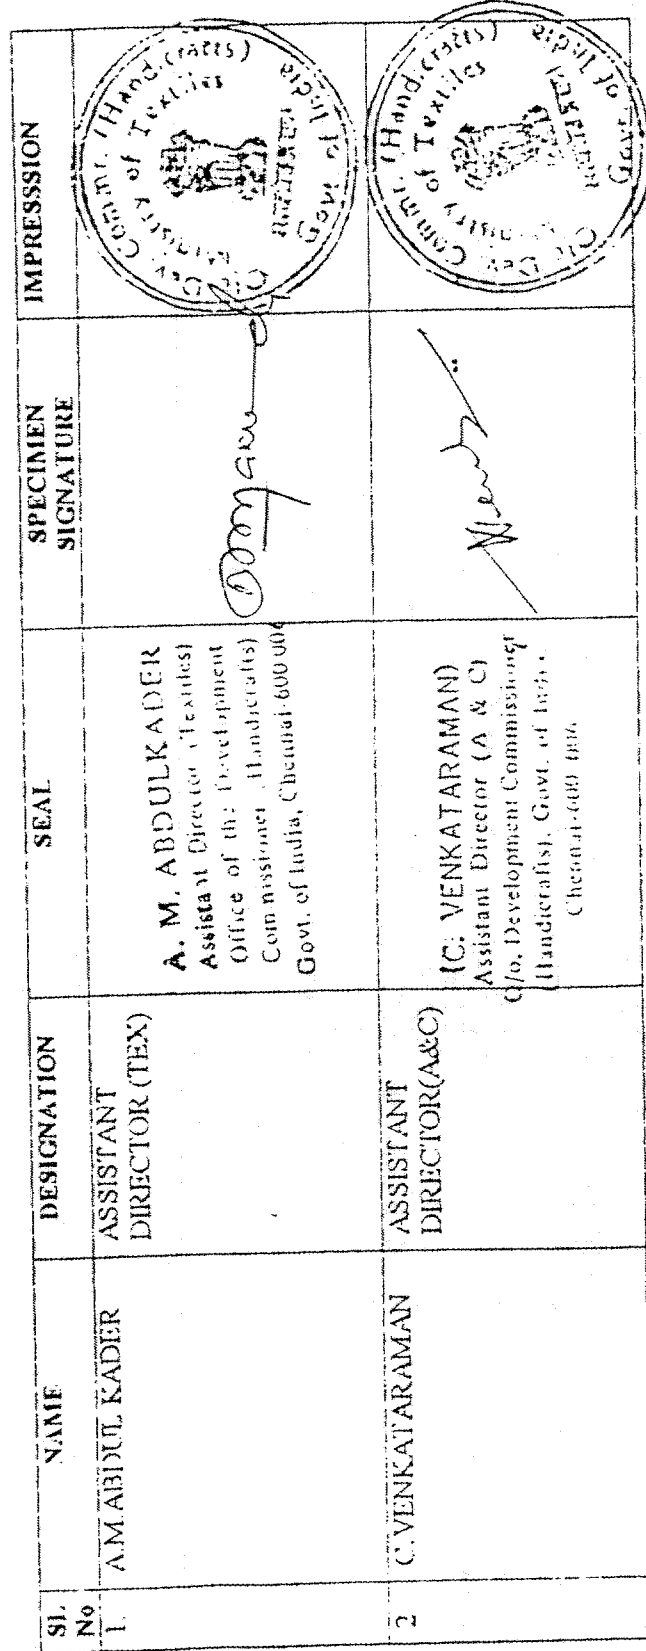 SL No
NAME
DESIGNATION
SEAL
SPECIMEN SIGNATURE
IMPRESSSION
1.
A.M.ABDUL KADER
ASSISTANT
DIRECTOR (TEX)
A. M. ABDULKADER
Assistant Director (Textiles)
Office of the Development
Commissioner (Handicrafts)
Govt. of India, Chennai-600 006
O/o Dev. Commr. (Handicrafts)
Ministry of Textiles
Govt of India
2
C.VENKATARAMAN
ASSISTANT
DIRECTOR(A&C)
(C. VENKATARAMAN)
Assistant Director (A & C)
O/o. Development Commissioner
(Handicrafts), Govt. of India
Chennai-600 006
O/o Dev. Commr. (Handicrafts)
Ministry of Textiles
Govt of India